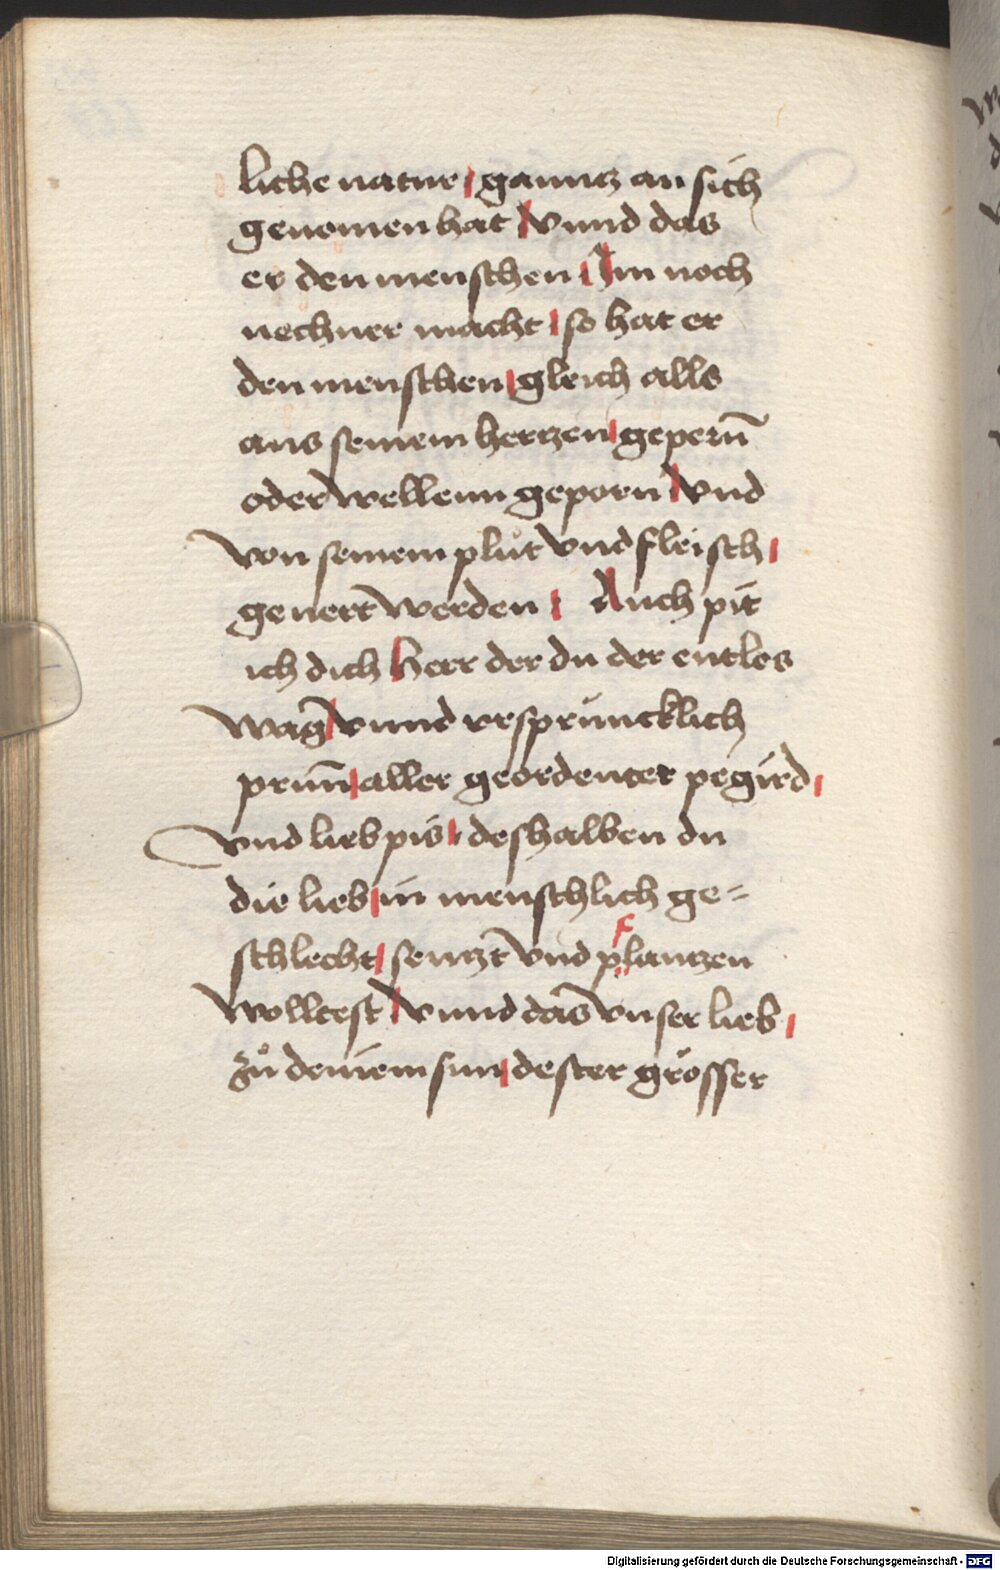 liche natur / ganntz an sich
genomen hat / vnnd das
er den menschen / Im noch
nechner macht / so hat er
den menschen / gleich alls
aus seinem hertzen / geperñ
oder wellenn geporn / vnd
von seinem plůt vnd fleisch /
genert werden / Auch pit
ich dich herr der du der entlos
wag / vnnd vrsprüncklich
prun̄ / aller geordenter pegird /
vnd lieb pis / deshalben du
die lieb / in menschlich ge=
schlecht / senntzt vnd pflantzen
wolltest / vnnd das vnser lieb /
zů deinem sun / dester grösser
Digitalisierung gefördert durch die Deutsche Forschungsgemeinschaft - DFG